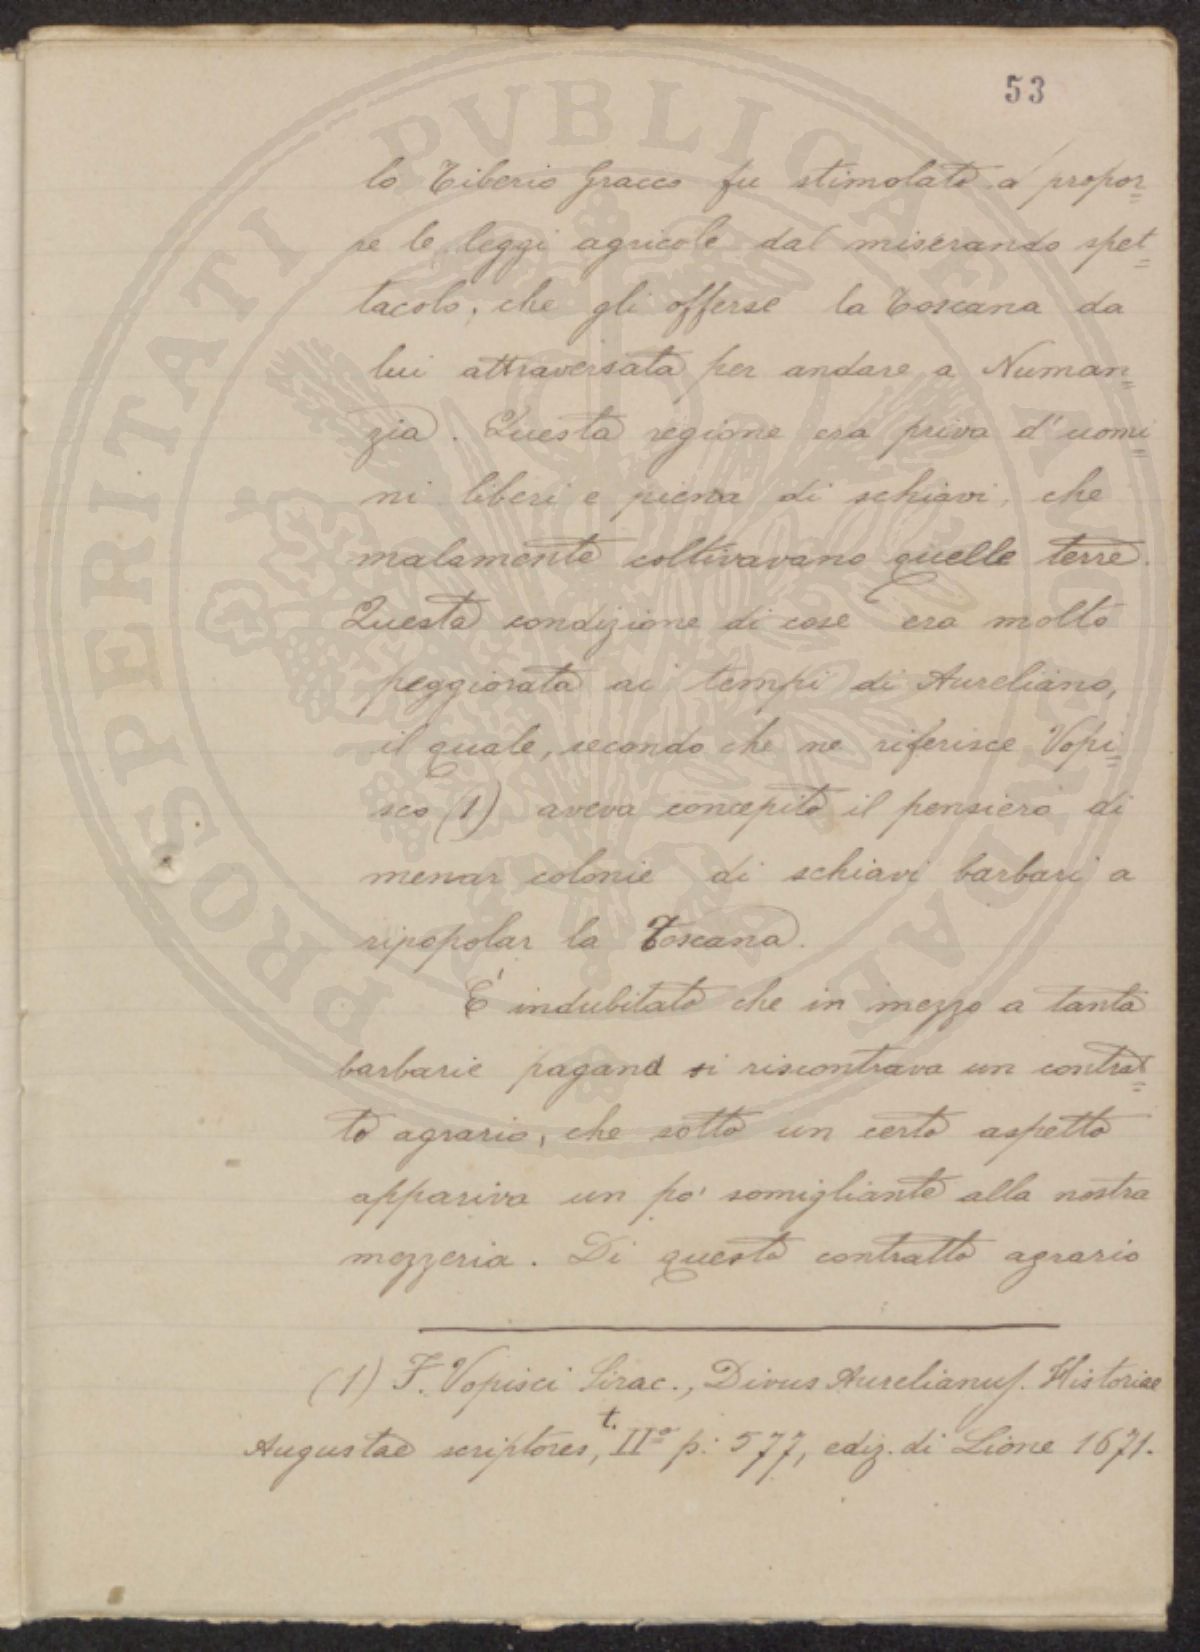 53
lo Tiberio Gracco fu stimolato a propor=
re le leggi agricole dal miserando spet=
tacolo, che gli offerse la Toscana da
lui attraversata per andare a Numan=
zia. Questa regione era priva d'uomi=
ni liberi e piena di schiavi, che
malamente coltivavano quelle terre.
Questa condizione di cose era molto
peggiorata ai tempi di Aureliano,
il quale, secondo che ne riferisce Vopi=
sco (1) aveva concepito il pensiero di
menar colonie di schiavi barbari a
ripopolar la Toscana.
È indubitato che in mezzo a tanta
barbarie pagana si riscontrava un contrat=
to agrario, che sotto un certo aspetto
appariva un po' somigliante alla nostra
mezzeria. Di questo contratto agrario
(1) F. Vopisci Sirac., Divus Aurelianus. Historiae
Augustae scriptores, t. IIº p. 577, ediz. di Lione 1671.
PROSPERITATI PVBLICAE AVGENDAE